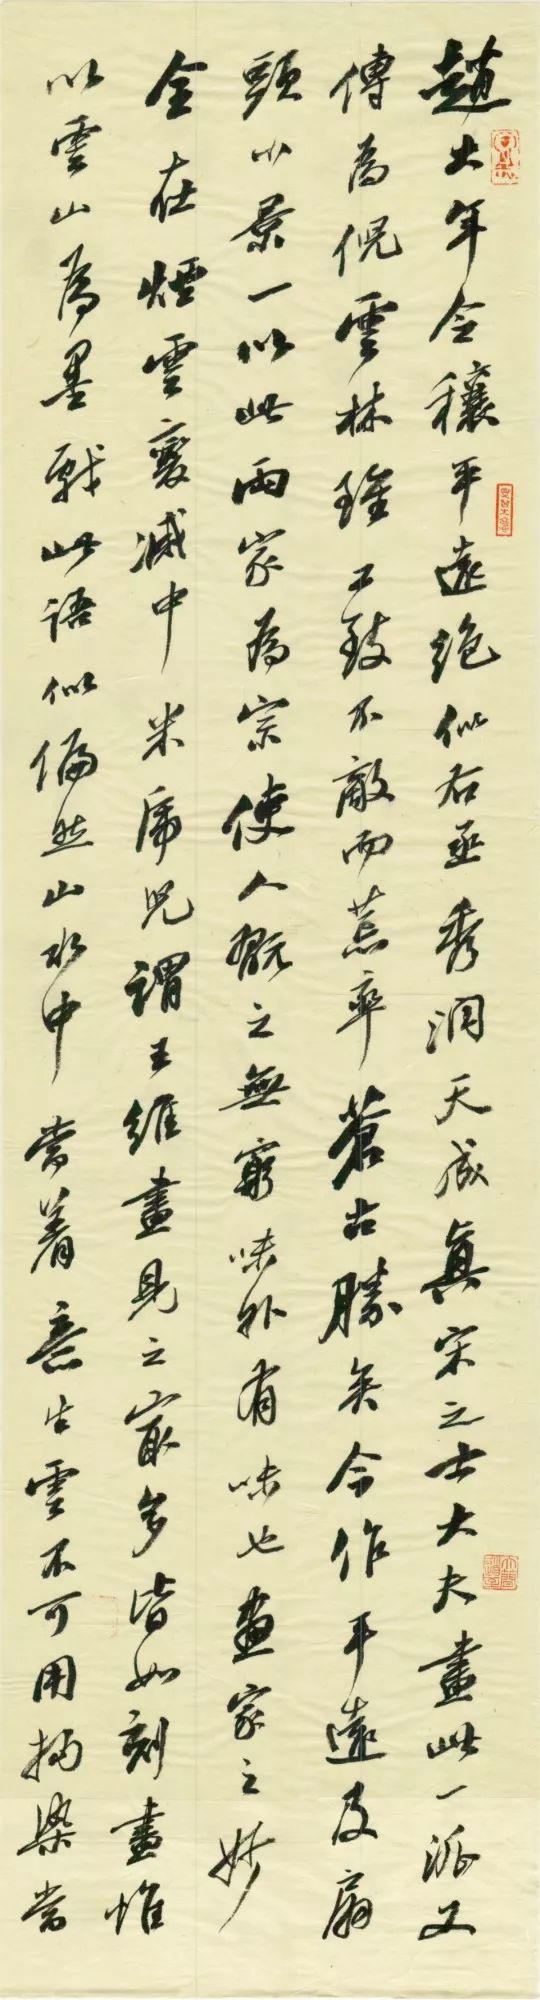 趙大年令穰平遠絶似右丞秀潤天成真宋之士大夫畫此一派又
傳為倪雲林雖工致不敵而荒率蒼古勝矣今作平遠及扇
頭小景一以此兩家為宗使人翫之無窮味外有味也畫家之妙
全在煙雲變滅中米虎兒謂王維畫見之最多皆如刻畫惟
以雲山為墨戲此語似偏然山水中當著意生雲不可用拘染當